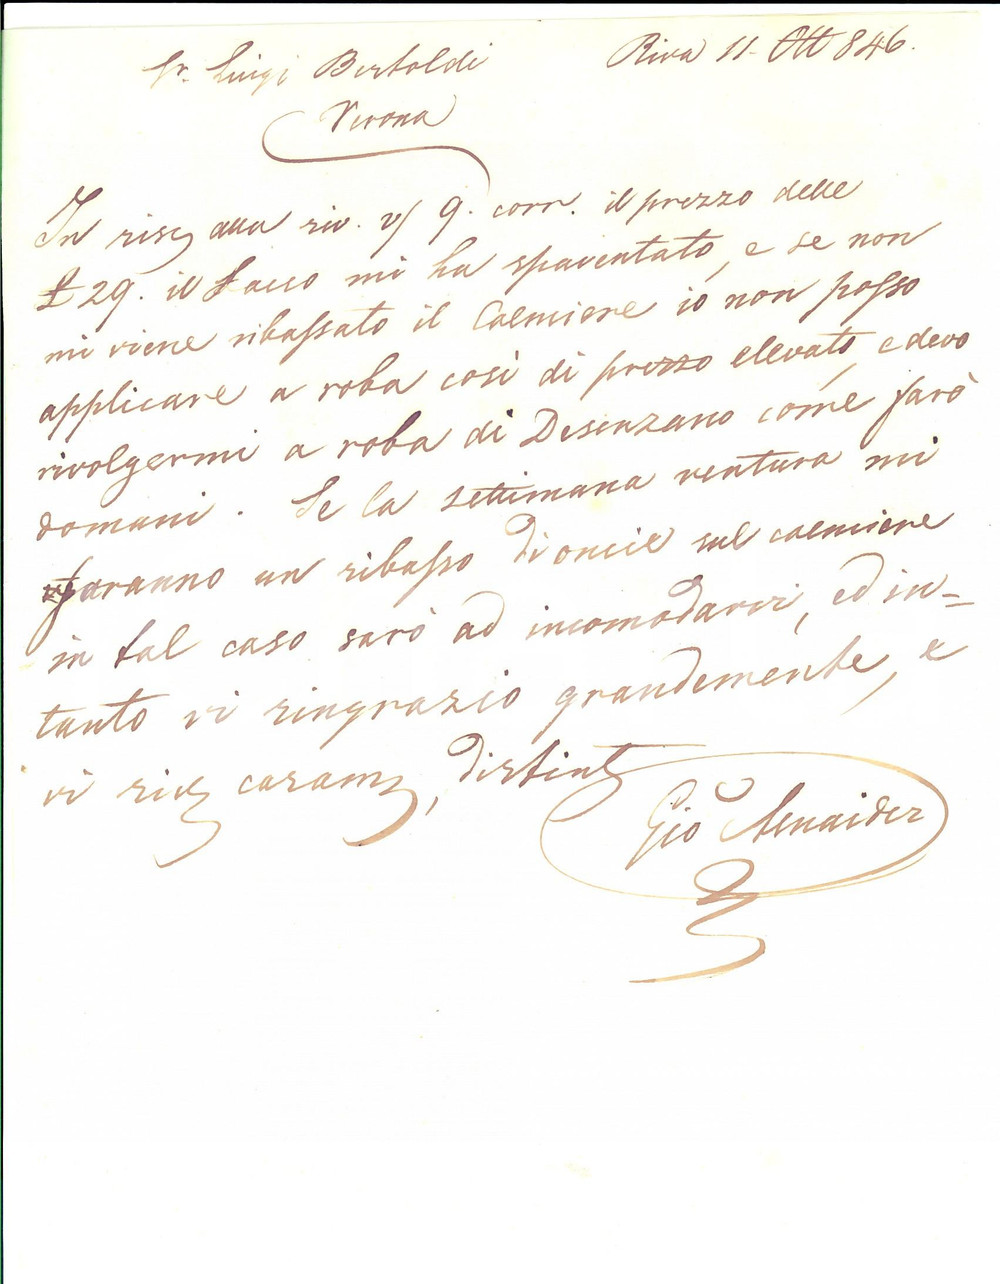 Sr. Luigi Bertoldi Riva 11 Ott 846.
Verona
In risc alla riv. v/ 9. corr. il prezzo delle
£ 29. il Sacco mi ha spaventato, e se non
mi viene ribassato il Calmiere io non posso
applicare a roba così di prezzo elevato, e devo
rivolgermi a roba di Desenzano come farò
domani. Se la settimana ventura mi
faranno un ribasso di oncie sul calmiere
in tal caso sarò ad incomodarvi, ed in-
tanto vi ringrazio grandemente, e
vi caram, distint
Gio